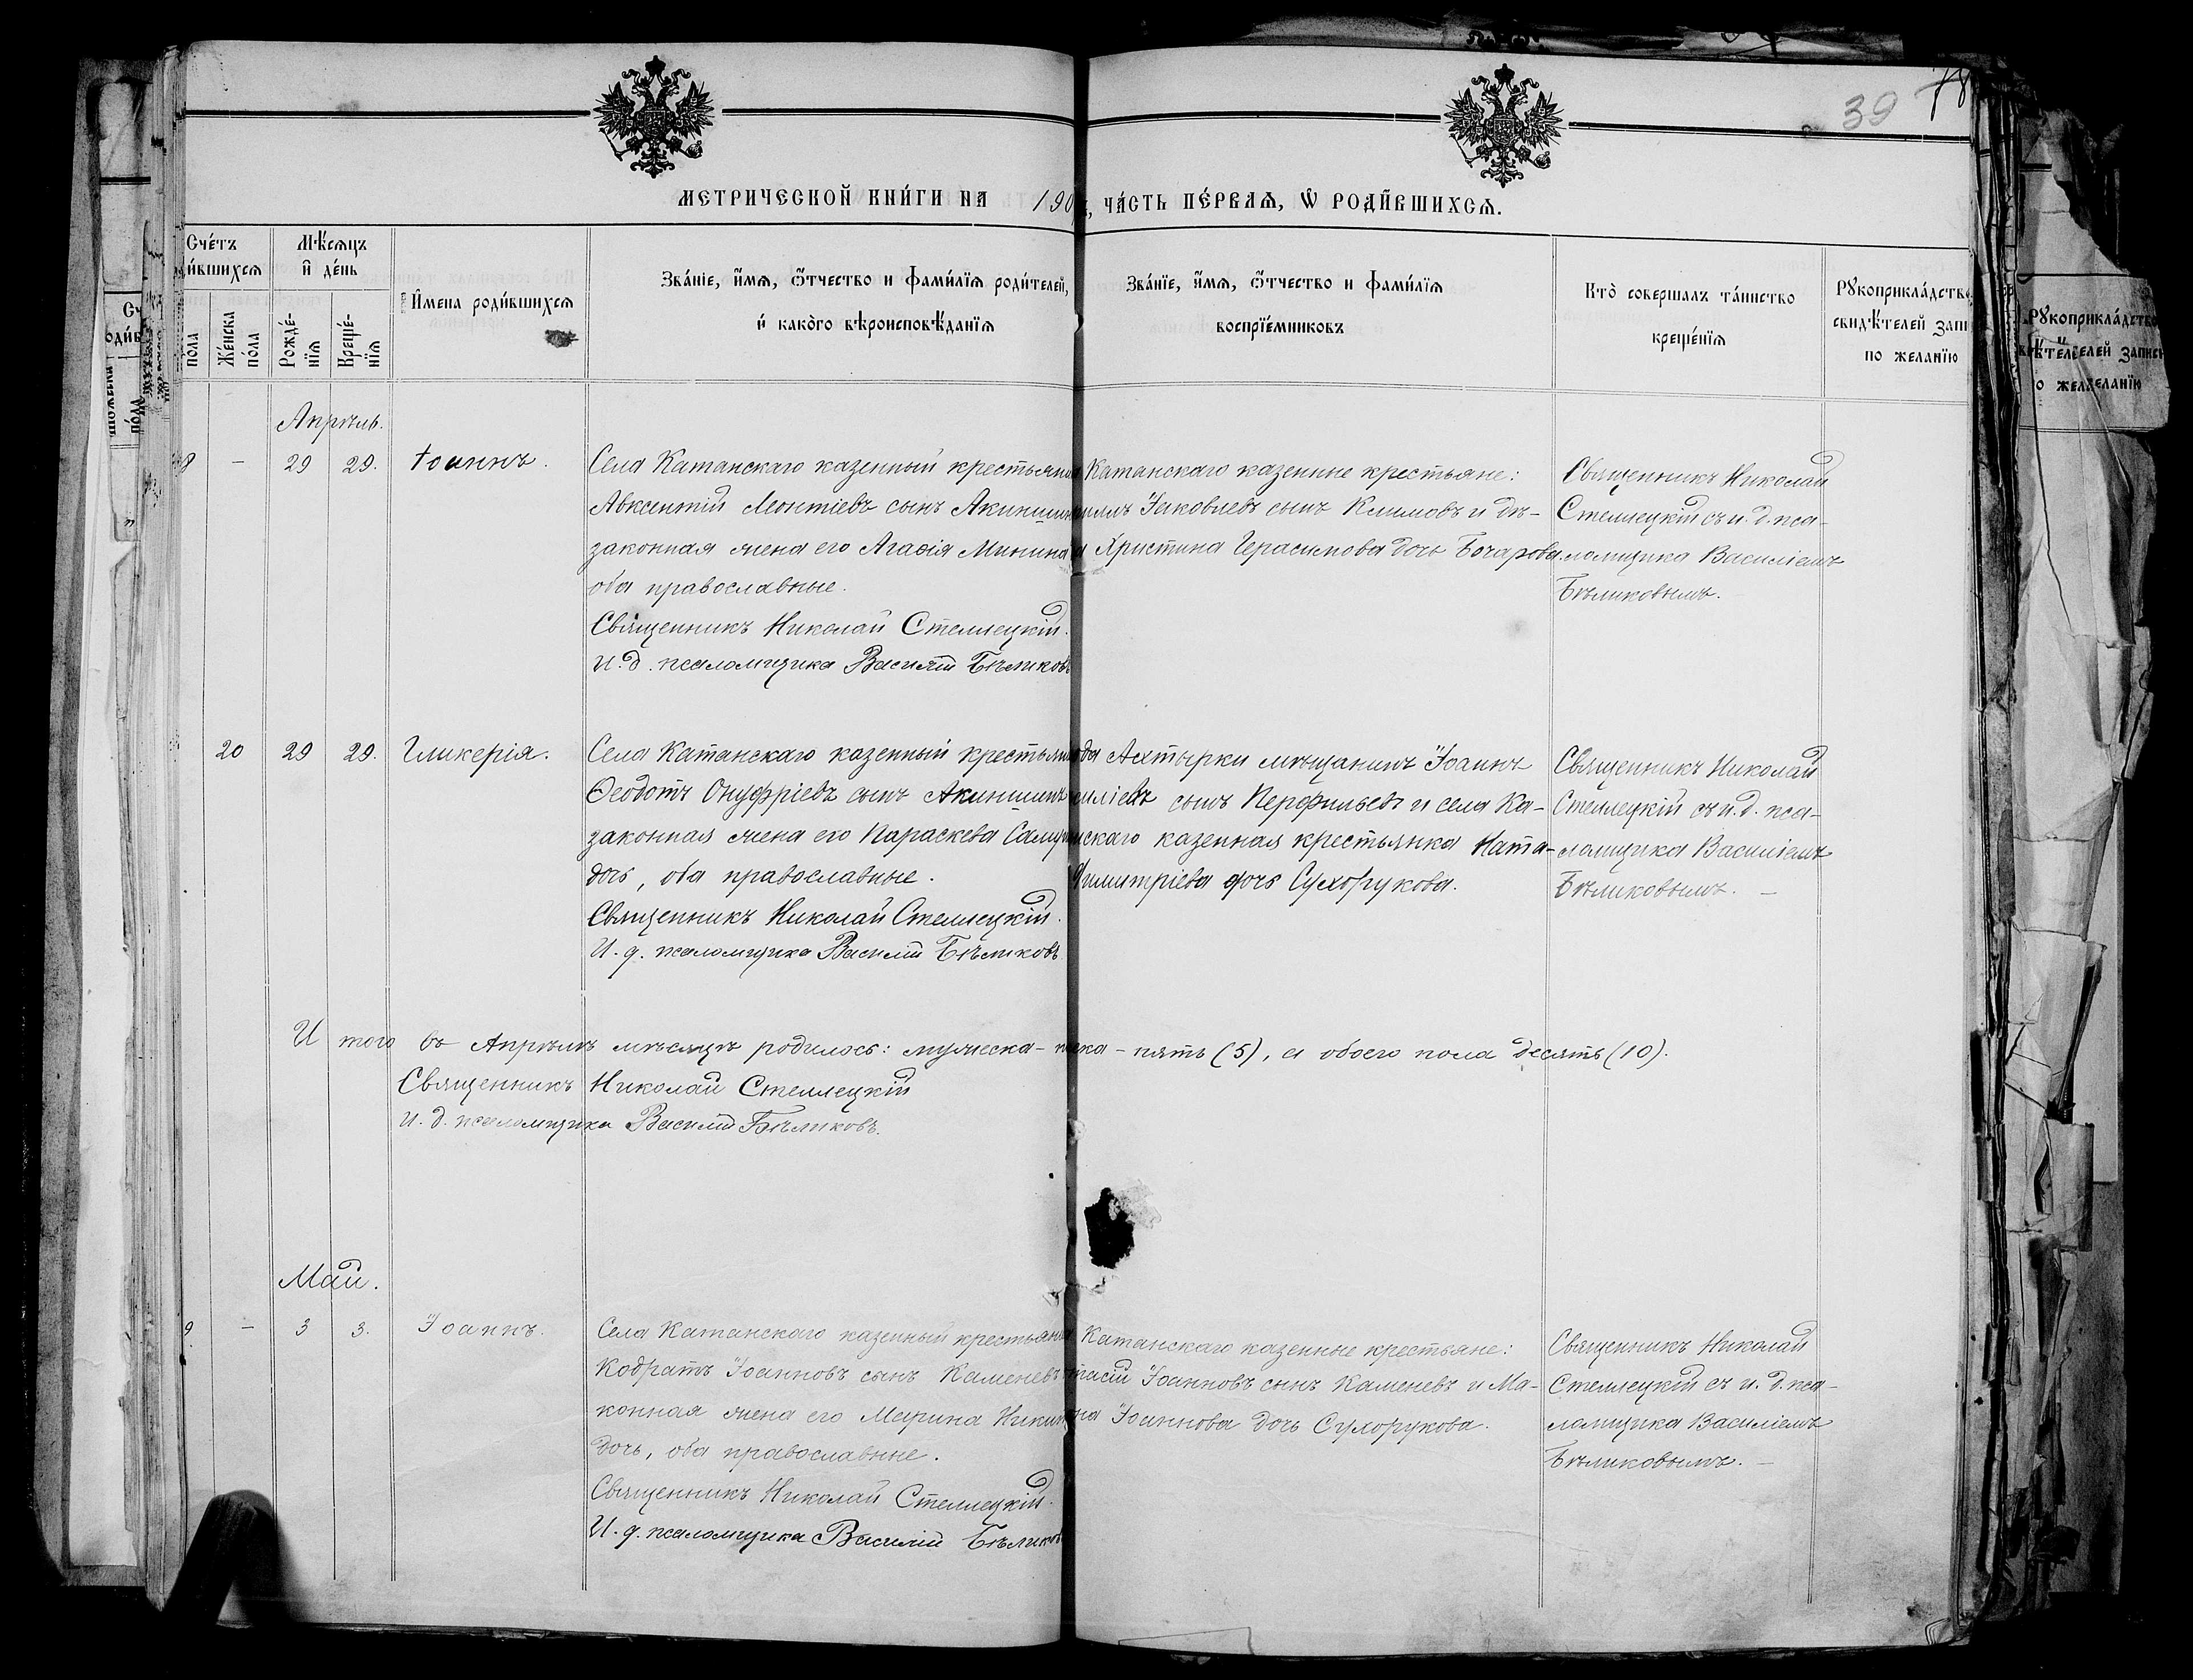 39 78
МЕТРИЧЕСКОЙ КНИ́ГИ НА 190 , ЧА́СТЬ ПЕ́РВАѦ, Ѡ РОДИ́ВШИХСѦ.
Сче́тъ
и́вшихсѧ
Мѣ́сѧцъ
и де́нь
И́мена роди́вшихсѧ
Зва́нїе, и́мѧ, ѻ́тчество и фами́лїѧ роди́телей,
и како́го вѣроисповѣ́данїѧ
Зва́нїе, и́мѧ, ѻ́тчество и фами́лїѧ
воспрїе́мниковъ
Кто̀ совершалъ та́инство
креще́нїѧ
Рꙋкоприкла́дств
свидѣ́телей запи
по желанїю
пола
Же́нска
по́ла
Рожде́-
нїѧ
Креще́-
нїѧ
Апрѣль.
8 – 29 29. Іоаннъ.
Села Катанскаго казенный крестьянин
Авксентій Леонтіевъ сынъ Акиншин
законная жена его Агаѳія Минина
оба православные.
Священникъ Николай Стеллецкій.
и. д. псаломщика Василій Бѣликовъ
Катанскаго казенные крестьяне:
Іаковлевъ сынъ Климовъ и дѣ-
Христина Герасимова дочь Бочарова.
Священникъ Николай
Стеллецкій съ и. д. пса-
ломщика Василіемъ
Бѣликовымъ.
20 29 29. Гликерія.
Села Катанскаго казенный крестьянин
Ѳеодотъ Онуфріевъ сынъ Акиншинъ
законная жена его Параскева
дочь, оба православные.
Священникъ Николай Стеллецкій.
И. д. псаломщика Василій Бѣликовъ
да Ахтырки мѣщанинъ Іоаннъ
силіевъ сынъ Перфильевъ и села Ка-
нскаго казенная крестьянка Ната-
Димитріева дочь Сухорукова.
Священникъ Николай
Стеллецкій съ и. д. пса-
ломщика Василіемъ
Бѣликовымъ. –
И того въ Апрѣлѣ мѣсяцѣ родилось: мужеска – ска – пять (5), а обоего пола десять (10).
Священникъ Николай Стеллецкій
и. д. псаломщика Василій Бѣликовъ.
Май.
9 – 3 3. Іоаннъ.
Села Катанскаго казенный крестьянин
Кодратъ Іоанновъ сынъ Каменевъ
конная жена его Марина Ники
дочь, оба православные.
Священникъ Николай Стеллецкій.
И. д. псаломщика Василій Бѣликов
Катанскаго казенные крестьяне:
тасій Іоанновъ сынъ Каменевъ и Ма-
на Іоаннова дочь Сухорукова.
Священникъ Николай
Стеллецкій съ и. д. пса-
ломщика Василіемъ
Бѣликовымъ. –
Рꙋкоприкла́дство
о желанїю